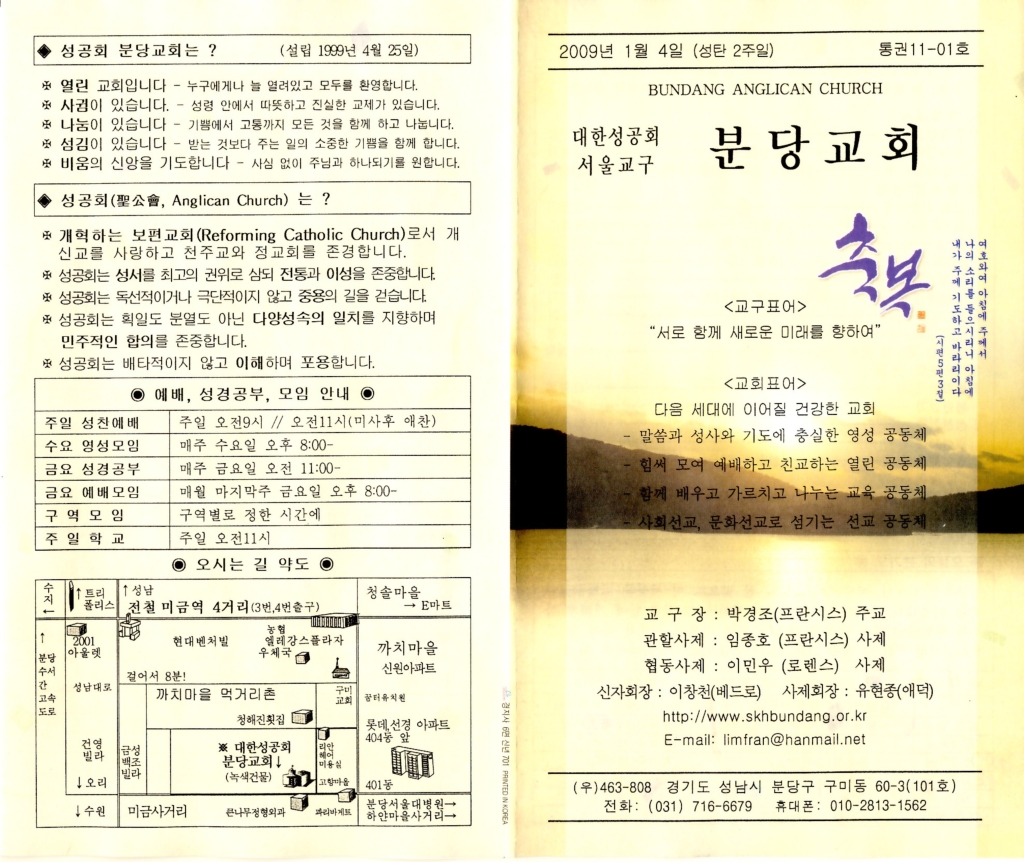 ◈ 성공회 분당교회는 ? (설립 1999년 4월 25일)
✠ 열린 교회입니다 - 누구에게나 늘 열려있고 모두를 환영합니다.
✠ 사귐이 있습니다. - 성령 안에서 따뜻하고 진실한 교제가 있습니다.
✠ 나눔이 있습니다 - 기쁨에서 고통까지 모든 것을 함께 하고 나눕니다.
✠ 섬김이 있습니다 - 받는 것보다 주는 일의 소중한 기쁨을 함께 합니다.
✠ 비움의 신앙을 기도합니다 - 사심 없이 주님과 하나되기를 원합니다.
◈ 성공회(聖公會, Anglican Church) 는 ?
✠ 개혁하는 보편교회(Reforming Catholic Church)로서 개
신교를 사랑하고 천주교와 정교회를 존경합니다.
✠ 성공회는 성서를 최고의 권위로 삼되 전통과 이성을 존중합니다.
✠ 성공회는 독선적이거나 극단적이지 않고 중용의 길을 걷습니다.
✠ 성공회는 획일도 분열도 아닌 다양성속의 일치를 지향하며
민주적인 합의를 존중합니다.
✠ 성공회는 배타적이지 않고 이해하며 포용합니다.
◉ 예배, 성경공부, 모임 안내 ◉
주일 성찬예배 주일 오전9시 // 오전11시(미사후 애찬)
수요 영성모임 매주 수요일 오후 8:00-
금요 성경공부 매주 금요일 오전 11:00-
금요 예배모임 매월 마지막주 금요일 오후 8:00-
구 역 모 임 구역별로 정한 시간에
주 일 학 교 주일 오전11시
◉ 오시는 길 약도 ◉
수지 ←
↑트리폴리스
↑성남
전철 미금역 4거리(3번,4번출구)
청솔마을
→ E마트
↑
분당
수서
간
고속
도로
2001
아울렛
성남대로
건영
빌라
↓오리
금성
백조
빌라
현대벤처빌
농협
엘레강스플라자
우체국
걸어서 8분!
까치마을
신원아파트
까치마을 먹거리촌
구미
교회
꿈터유치원
청해진횟집
롯데,선경 아파트
404동 앞
※ 대한성공회
분당교회↓
(녹색건물)
리안
헤어
미용실
고향마을
401동
↓수원
미금사거리
큰나무정형외과
파리바게트
분당서울대병원→
하얀마을사거리→
경지사 6면 신년 701 PRINTED IN KOREA
2009년 1월 4일 (성탄 2주일) 통권11-01호
BUNDANG ANGLICAN CHURCH
대한성공회
서울교구
분당교회
축복
여호와여 아침에 주께서
나의 소리를 들으시리니 아침에
내가 주께 기도하고 바라리이다
(시편5편3절)
<교구표어>
"서로 함께 새로운 미래를 향하여"
<교회표어>
다음 세대에 이어질 건강한 교회
- 말씀과 성사와 기도에 충실한 영성 공동체
- 힘써 모여 예배하고 친교하는 열린 공동체
- 함께 배우고 가르치고 나누는 교육 공동체
- 사회선교, 문화선교로 섬기는 선교 공동체
교 구 장 : 박경조(프란시스) 주교
관할사제 : 임종호 (프란시스) 사제
협동사제 : 이민우 (로렌스) 사제
신자회장 : 이창천(베드로) 사제회장 : 유현종(애덕)
http://www.skhbundang.or.kr
E-mail: limfran@hanmail.net
(우)463-808 경기도 성남시 분당구 구미동 60-3(101호)
전화: (031) 716-6679 휴대폰: 010-2813-1562